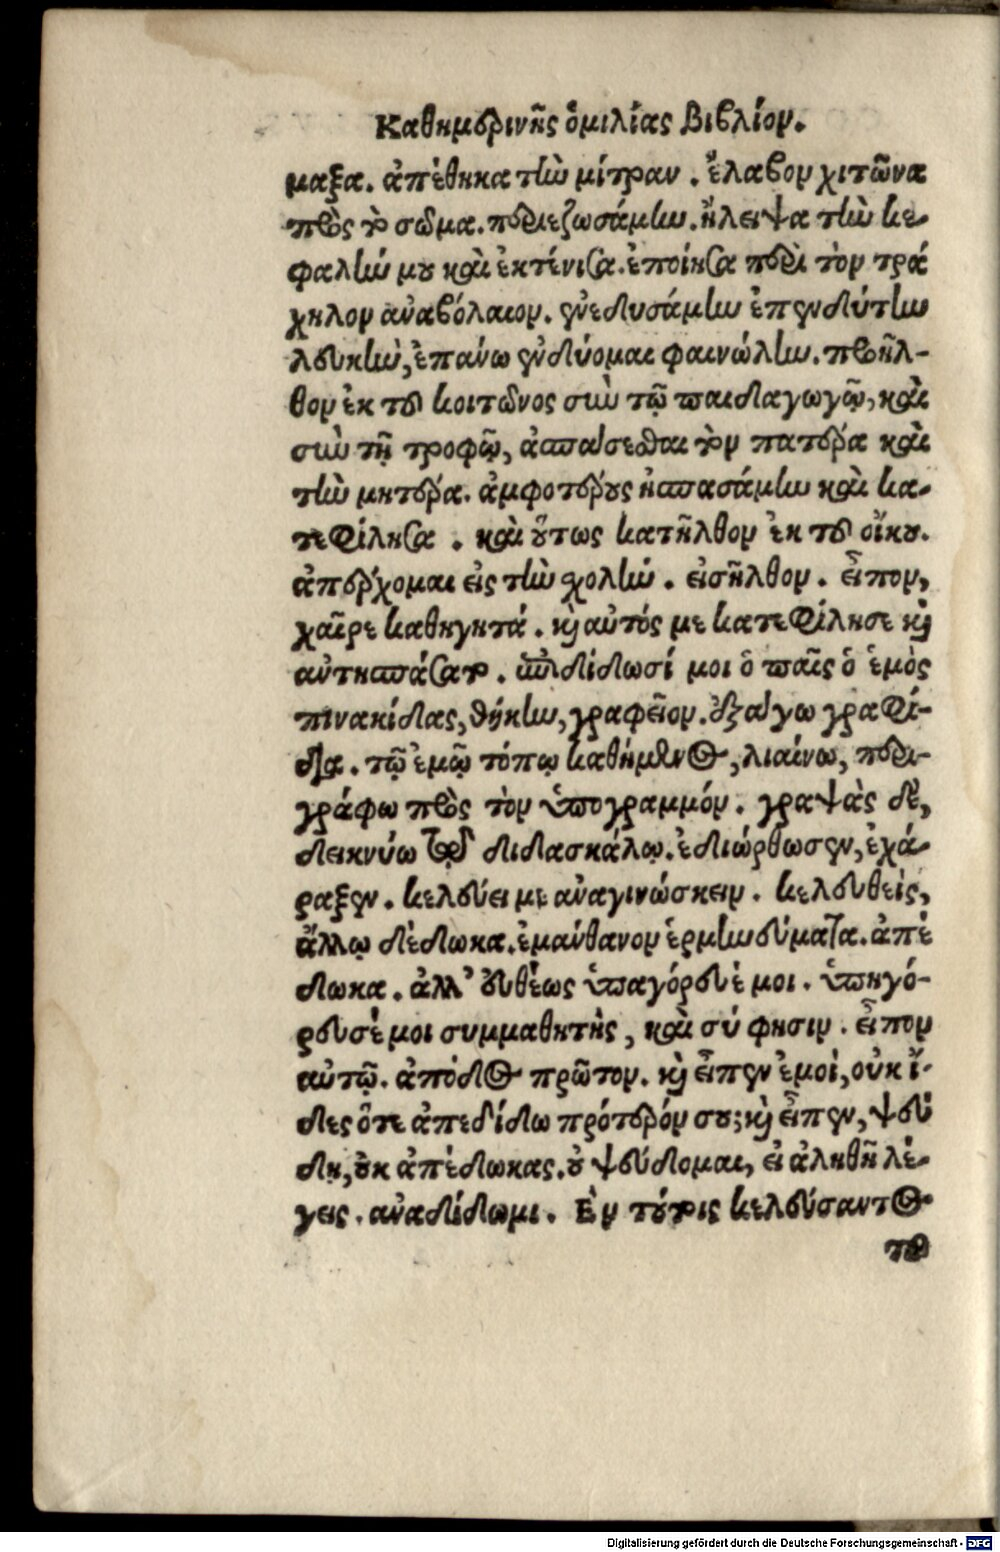 Καθημερινῆς ὁμιλίας βιβλίον.
μαξα. ἀπέθηκα τὴν μίτραν. ἔλαβον χιτῶνα
πρὸς τὸ σῶμα. περιεζωσάμην. ἤλειψα τὴν κε-
φαλήν μου καὶ ἐκτένισα. ἐποίησα περὶ τὸν τρά
χηλον ἀναβόλαιον. ἐνεδυσάμην ἐπενδύτην
λευκὴν, ἐπάνω ἐνδύομαι φαινώλην. προῆλ-
θον ἐκ τοῦ κοιτῶνος σὺν τῷ παιδαγωγῷ, καὶ
σὺν τῇ τροφῷ, ἀσπάσεσθαι τὸν πατέρα καὶ
τὴν μητέρα. ἀμφοτέρους ἠσπασάμην καὶ κα-
τεφίλησα. καὶ οὕτως κατῆλθον ἐκ τοῦ οἴκου.
ἀπέρχομαι εἰς τὴν σχολήν. εἰσῆλθον. εἶπον,
χαῖρε καθηγητά. καὶ αὐτός με κατεφίλησε καὶ
αὐτησπάσατο. ἐπιδίδωσί μοι ὁ παῖς ὁ ἐμὸς
πινακίδας, θήκην, γραφεῖον. ἐξάγω γραφί-
δα. τῷ ἐμῷ τόπῳ καθήμενος, λιαίνω, περι-
γράφω πρὸς τὸν ὑπογραμμόν. γραψὰς δὲ,
δεικνύω τῷ διδασκάλῳ. ἐδιώρθωσεν, ἐχά-
ραξεν. κελεύει με ἀναγινώσκειν. κελευθεὶς,
ἄλλῳ δέδωκα. ἐμάνθανον ἑρμηνεύματα. ἀπέ
δωκα. ἀλλ' εὐθέως ὑπαγόρευέ μοι. ὑπηγό-
ρευσέ μοι συμμαθητὴς, καὶ σύ φησιν. εἶπον
αὐτῷ. ἀπόδος πρῶτον. καὶ εἶπεν ἐμοὶ, οὐκ ἴ-
δες ὅτε ἀπεδίδω πρότερόν σου; καὶ εἶπεν, ψεύ
δῃ, οὐκ ἀπέδωκας. οὐ ψεύδομαι, εἰ ἀληθῆ λέ-
γεις. ἀναδίδωμι. Ἐν τούτοις κελεύσαντος
το
Digitalisierung gefördert durch die Deutsche Forschungsgemeinschaft - DFG